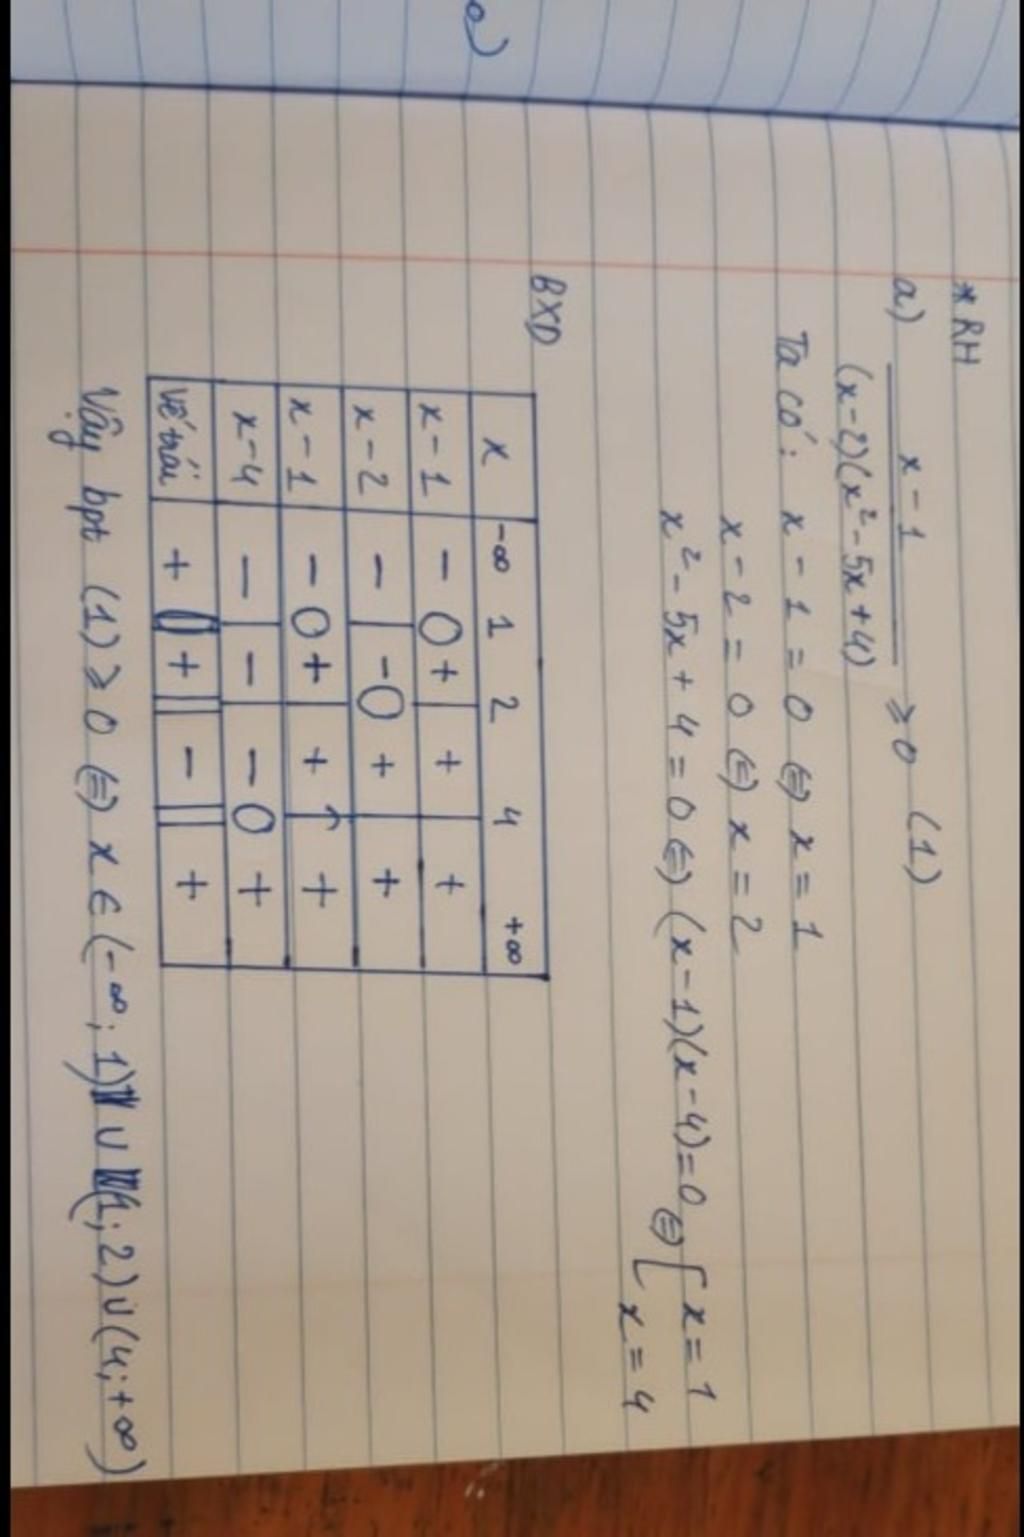 * RH
a) x - 1 / (x-2)(x² - 5x + 4) ≥ 0 (1)
Ta có: x - 1 = 0 ⇔ x = 1
x - 2 = 0 ⇔ x = 2
x² - 5x + 4 = 0 ⇔ (x - 1)(x - 4) = 0 ⇔ [ x = 1
x = 4
BXD
x -∞ 1 2 4 +∞
x - 1 - 0 + | + | +
x - 2 - | - 0 + | +
x - 1 - 0 + | + | +
x - 4 - | - | - 0 +
Vế trái + || + || - || +
Vậy bpt (1) ≥ 0 ⇔ x ∈ (-∞; 1) ∪ (1; 2) ∪ (4; +∞)
a)